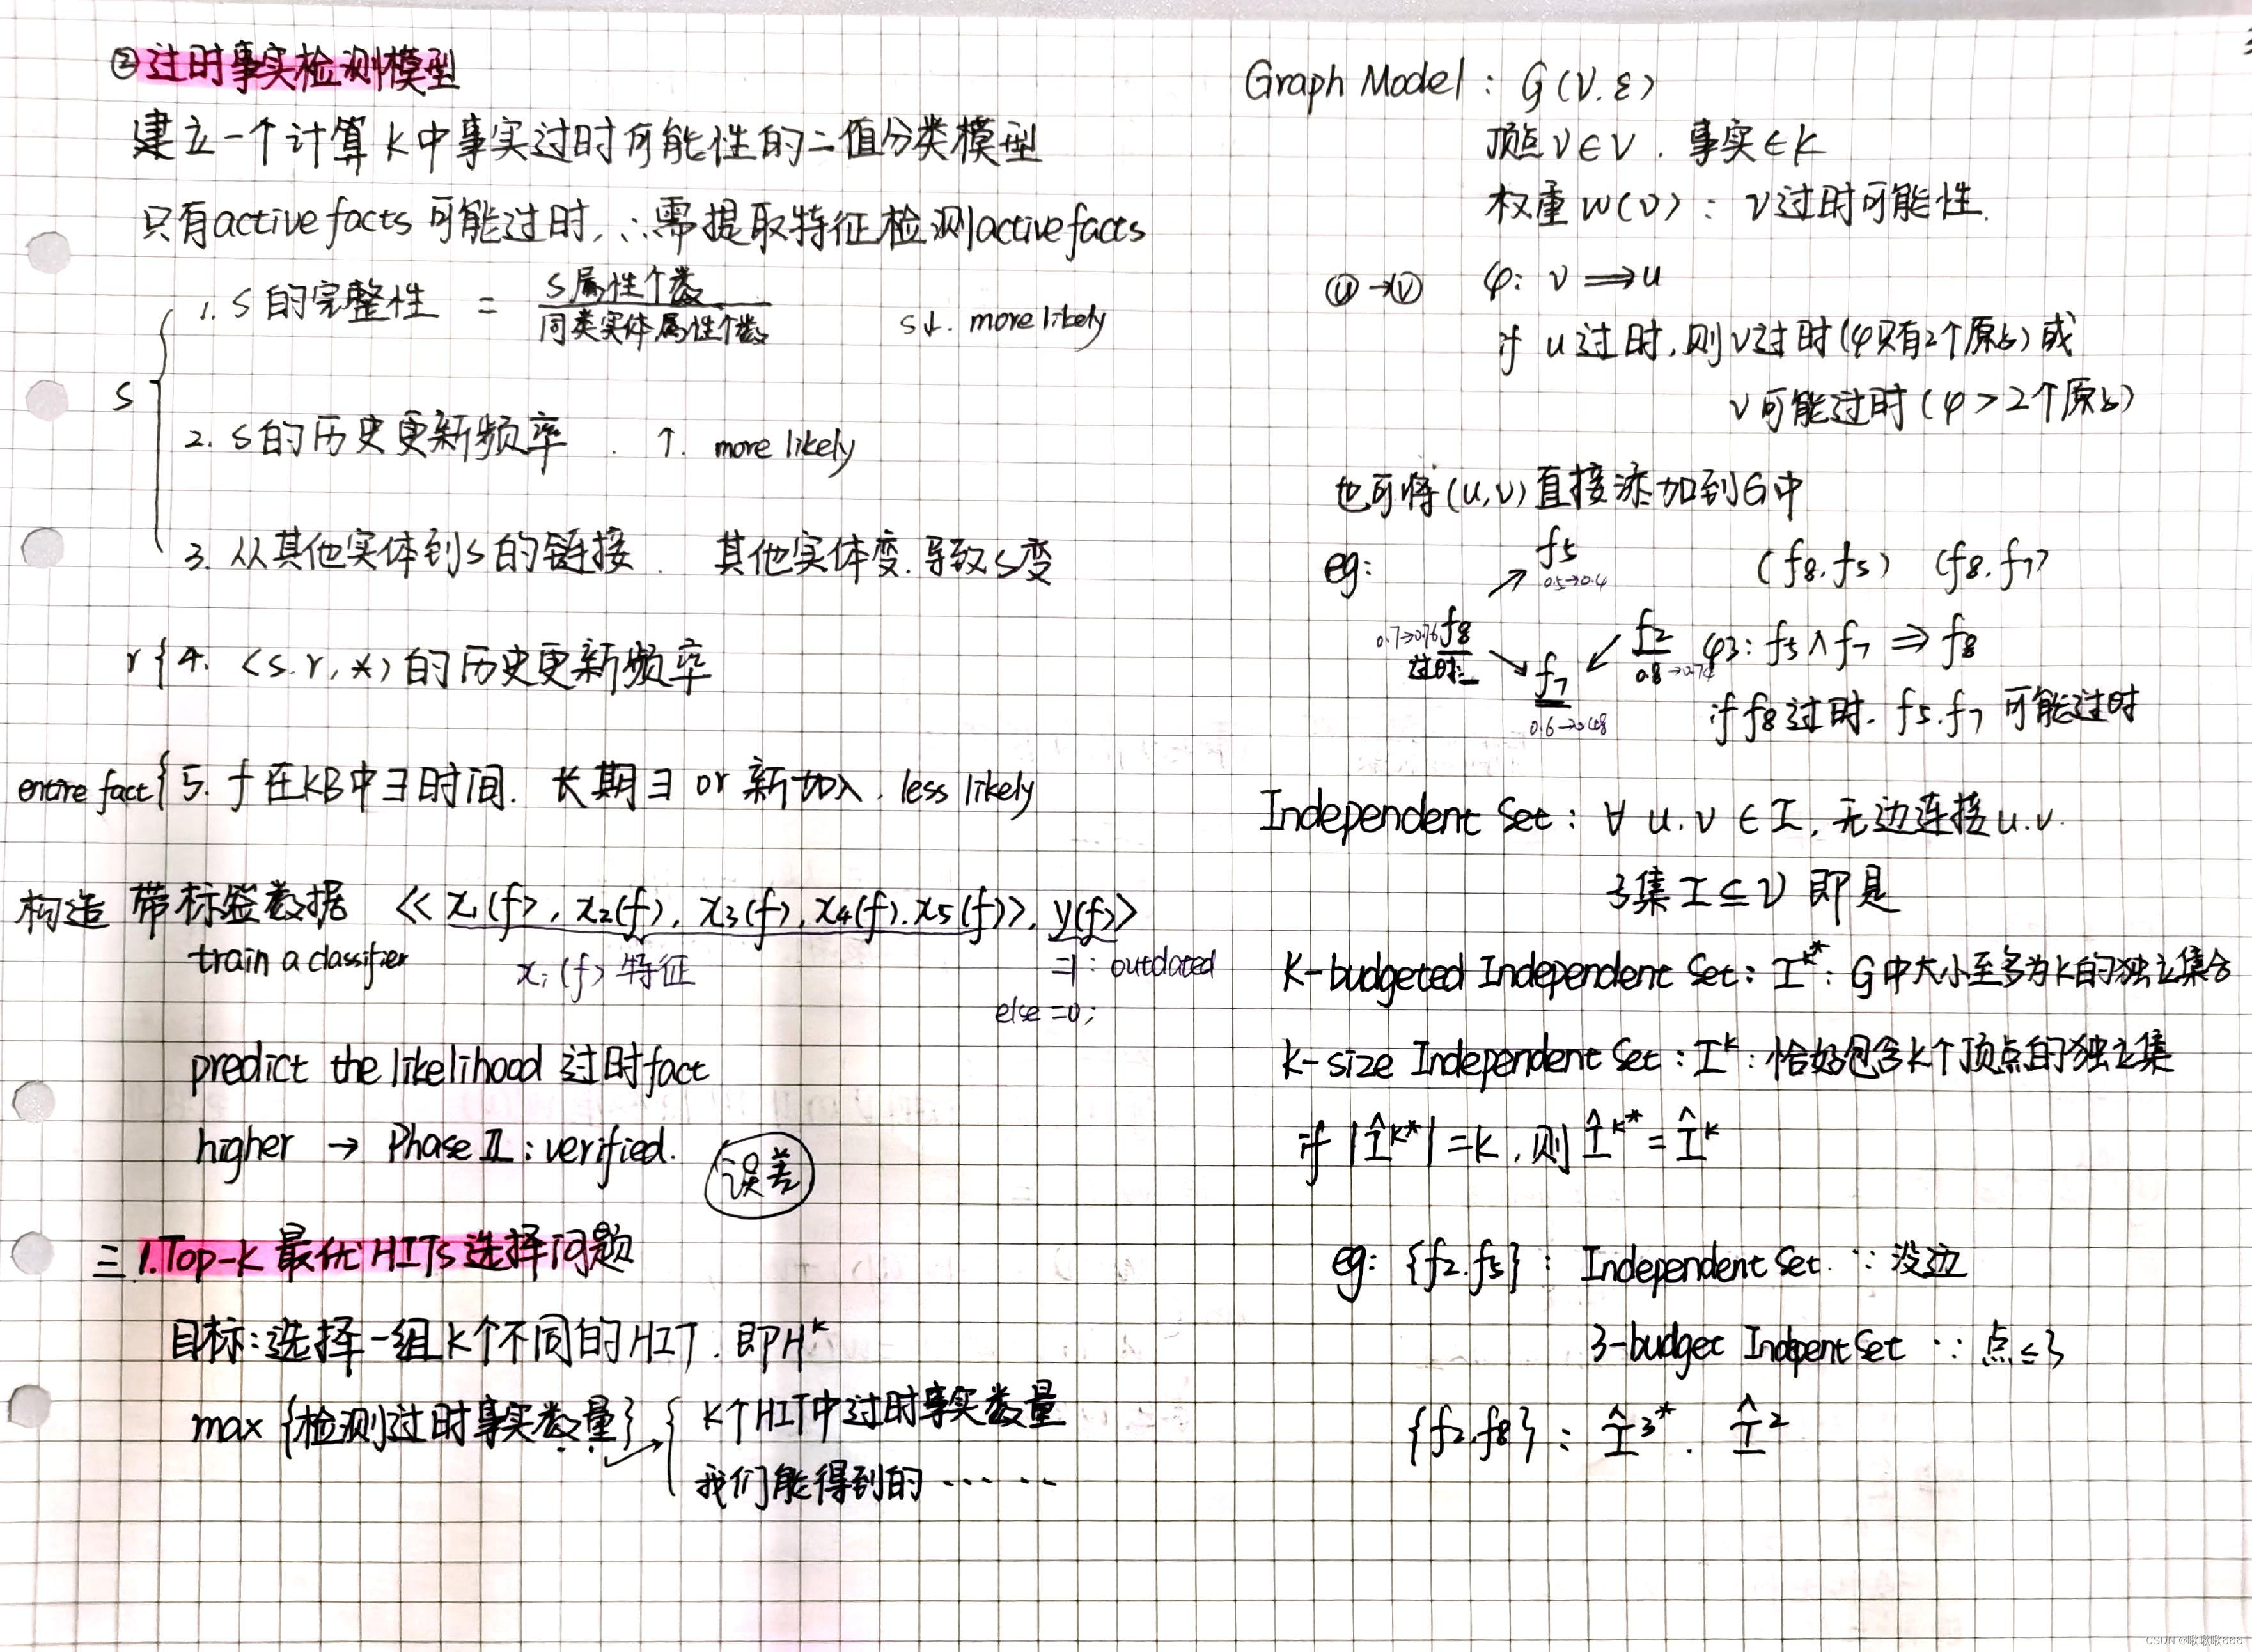 ②过时事实检测模型
建立一个计算K中事实过时可能性的二值分类模型
只有active facts 可能过时, ∴需提取特征检测active facts
S
1. S的完整性 = S属性个数 / 同类实体属性个数 S↓. more likely
2. S的历史更新频率. ↑. more likely
3. 从其他实体到S的链接. 其他实体变.导致S变
r { 4. <s.r,*>的历史更新频率
entire fact { 5. f在KB中∃时间. 长期∃ or 新加入. less likely
构造 带标签数据 <<x₁(f), x₂(f), x₃(f), x₄(f).x₅(f)>, y(f)>
train a classifier xᵢ(f) 特征 =1: outdated
else =0;
predict the likelihood 过时fact
higher → Phase Ⅱ: verified.
误差
三 1.Top-K 最优HITs选择问题
目标:选择一组K个不同的HIT. 即Hᵏ
max {检测过时事实数量} → { K个HIT中过时事实数量
我们能得到的 ······
Graph Model : G(V.ε)
顶点v∈V. 事实∈K
权重w(v): v过时可能性.
ⓤ→ⓥ φ: v ⟹ u
if u过时,则v过时(φ只有2个原子)或
v可能过时(φ>2个原子)
也可将(u,v)直接添加到G中
eg: f5 (f8.f5) (f8.f7)
0.5→0.4
0.7→0.76 f8 f2 φ3: f5∧f7 ⇒ f8
过时 f7 0.8→0.74
0.6→0.48 if f8过时. f5.f7 可能过时
Independent Set: ∀ u.v ∈ I, 无边连接u.v.
子集I⊆V 即是
K-budgeted Independent Set: Iᵏ*: G中大小至多为K的独立集合
k-size Independent Set: Iᵏ: 恰好包含K个顶点的独立集
if |Îᵏ*|=k, 则 Îᵏ*=Îᵏ
eg: {f2.f5}: Independent Set. ∵没边
3-budget Indpent Set ∵点≤3
{f2.f8}: Î³*. Î²
CSDN @啾啾啾666